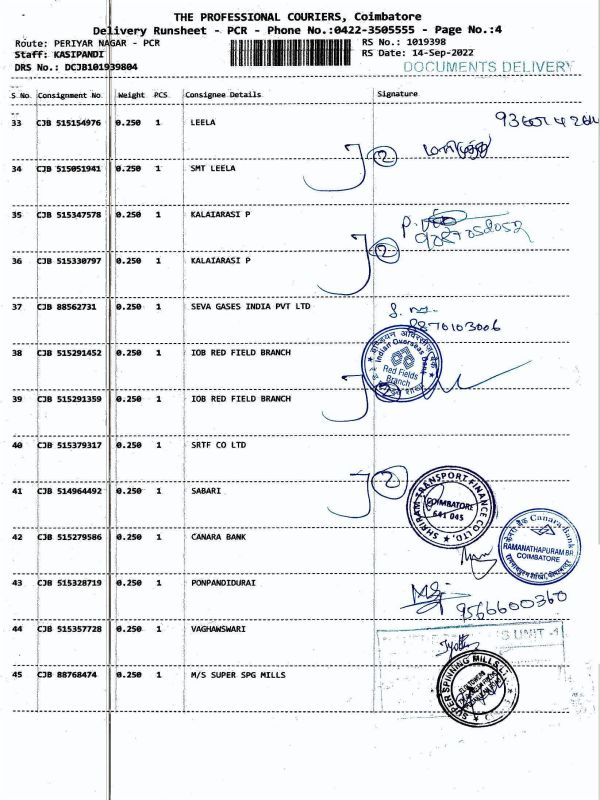 THE PROFESSIONAL COURIERS, Coimbatore
Delivery Runsheet - PCR - Phone No.:0422-3505555 - Page No.:4
Route: PERIYAR NAGAR - PCR
RS No.: 1019398
Staff: KASIPANDI
RS Date: 14-Sep-2022
DRS No.: DCJB101939804
DOCUMENTS DELIVERY
S No. Consignment No. Weight PCS Consignee Details Signature
33 CJB 515154976 0.250 1 LEELA
34 CJB 515051941 0.250 1 SMT LEELA
2
35 CJB 515347578 0.250 1 KALAIARASI P
36 CJB 515330797 0.250 1 KALAIARASI P
2
37 CJB 88562731 0.250 1 SEVA GASES INDIA PVT LTD
8870103006
38 CJB 515291452 0.250 1 IOB RED FIELD BRANCH
Indian Overseas Bank
Red Fields
Branch
39 CJB 515291359 0.250 1 IOB RED FIELD BRANCH
40 CJB 515379317 0.250 1 SRTF CO LTD
41 CJB 514964492 0.250 1 SABARI
2
SHRIRAM TRANSPORT FINANCE CO LTD.
COIMBATORE
641 045
42 CJB 515279586 0.250 1 CANARA BANK
केनरा बैंक Canara Bank
RAMANATHAPURAM BR.
COIMBATORE
43 CJB 515328719 0.250 1 PONPANDIDURAI
9566600360
44 CJB 515357728 0.250 1 VAGHAWSWARI
S UNIT -1
Jyothi
45 CJB 88768474 0.250 1 M/S SUPER SPG MILLS
SUPER SPINNING MILLS LT